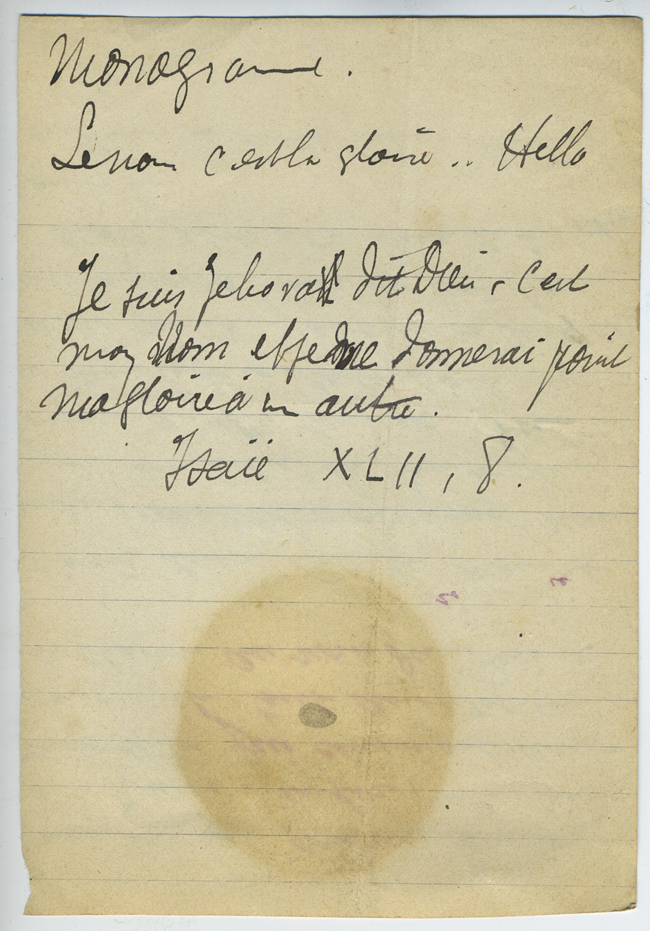 Monogramme.
Le nom c'est la gloire .. Hello
Je suis Jehovah dit Dieu, c'est
mon Nom et je ne donnerai point
ma gloire à un autre.
Isaïe XLII, 8.